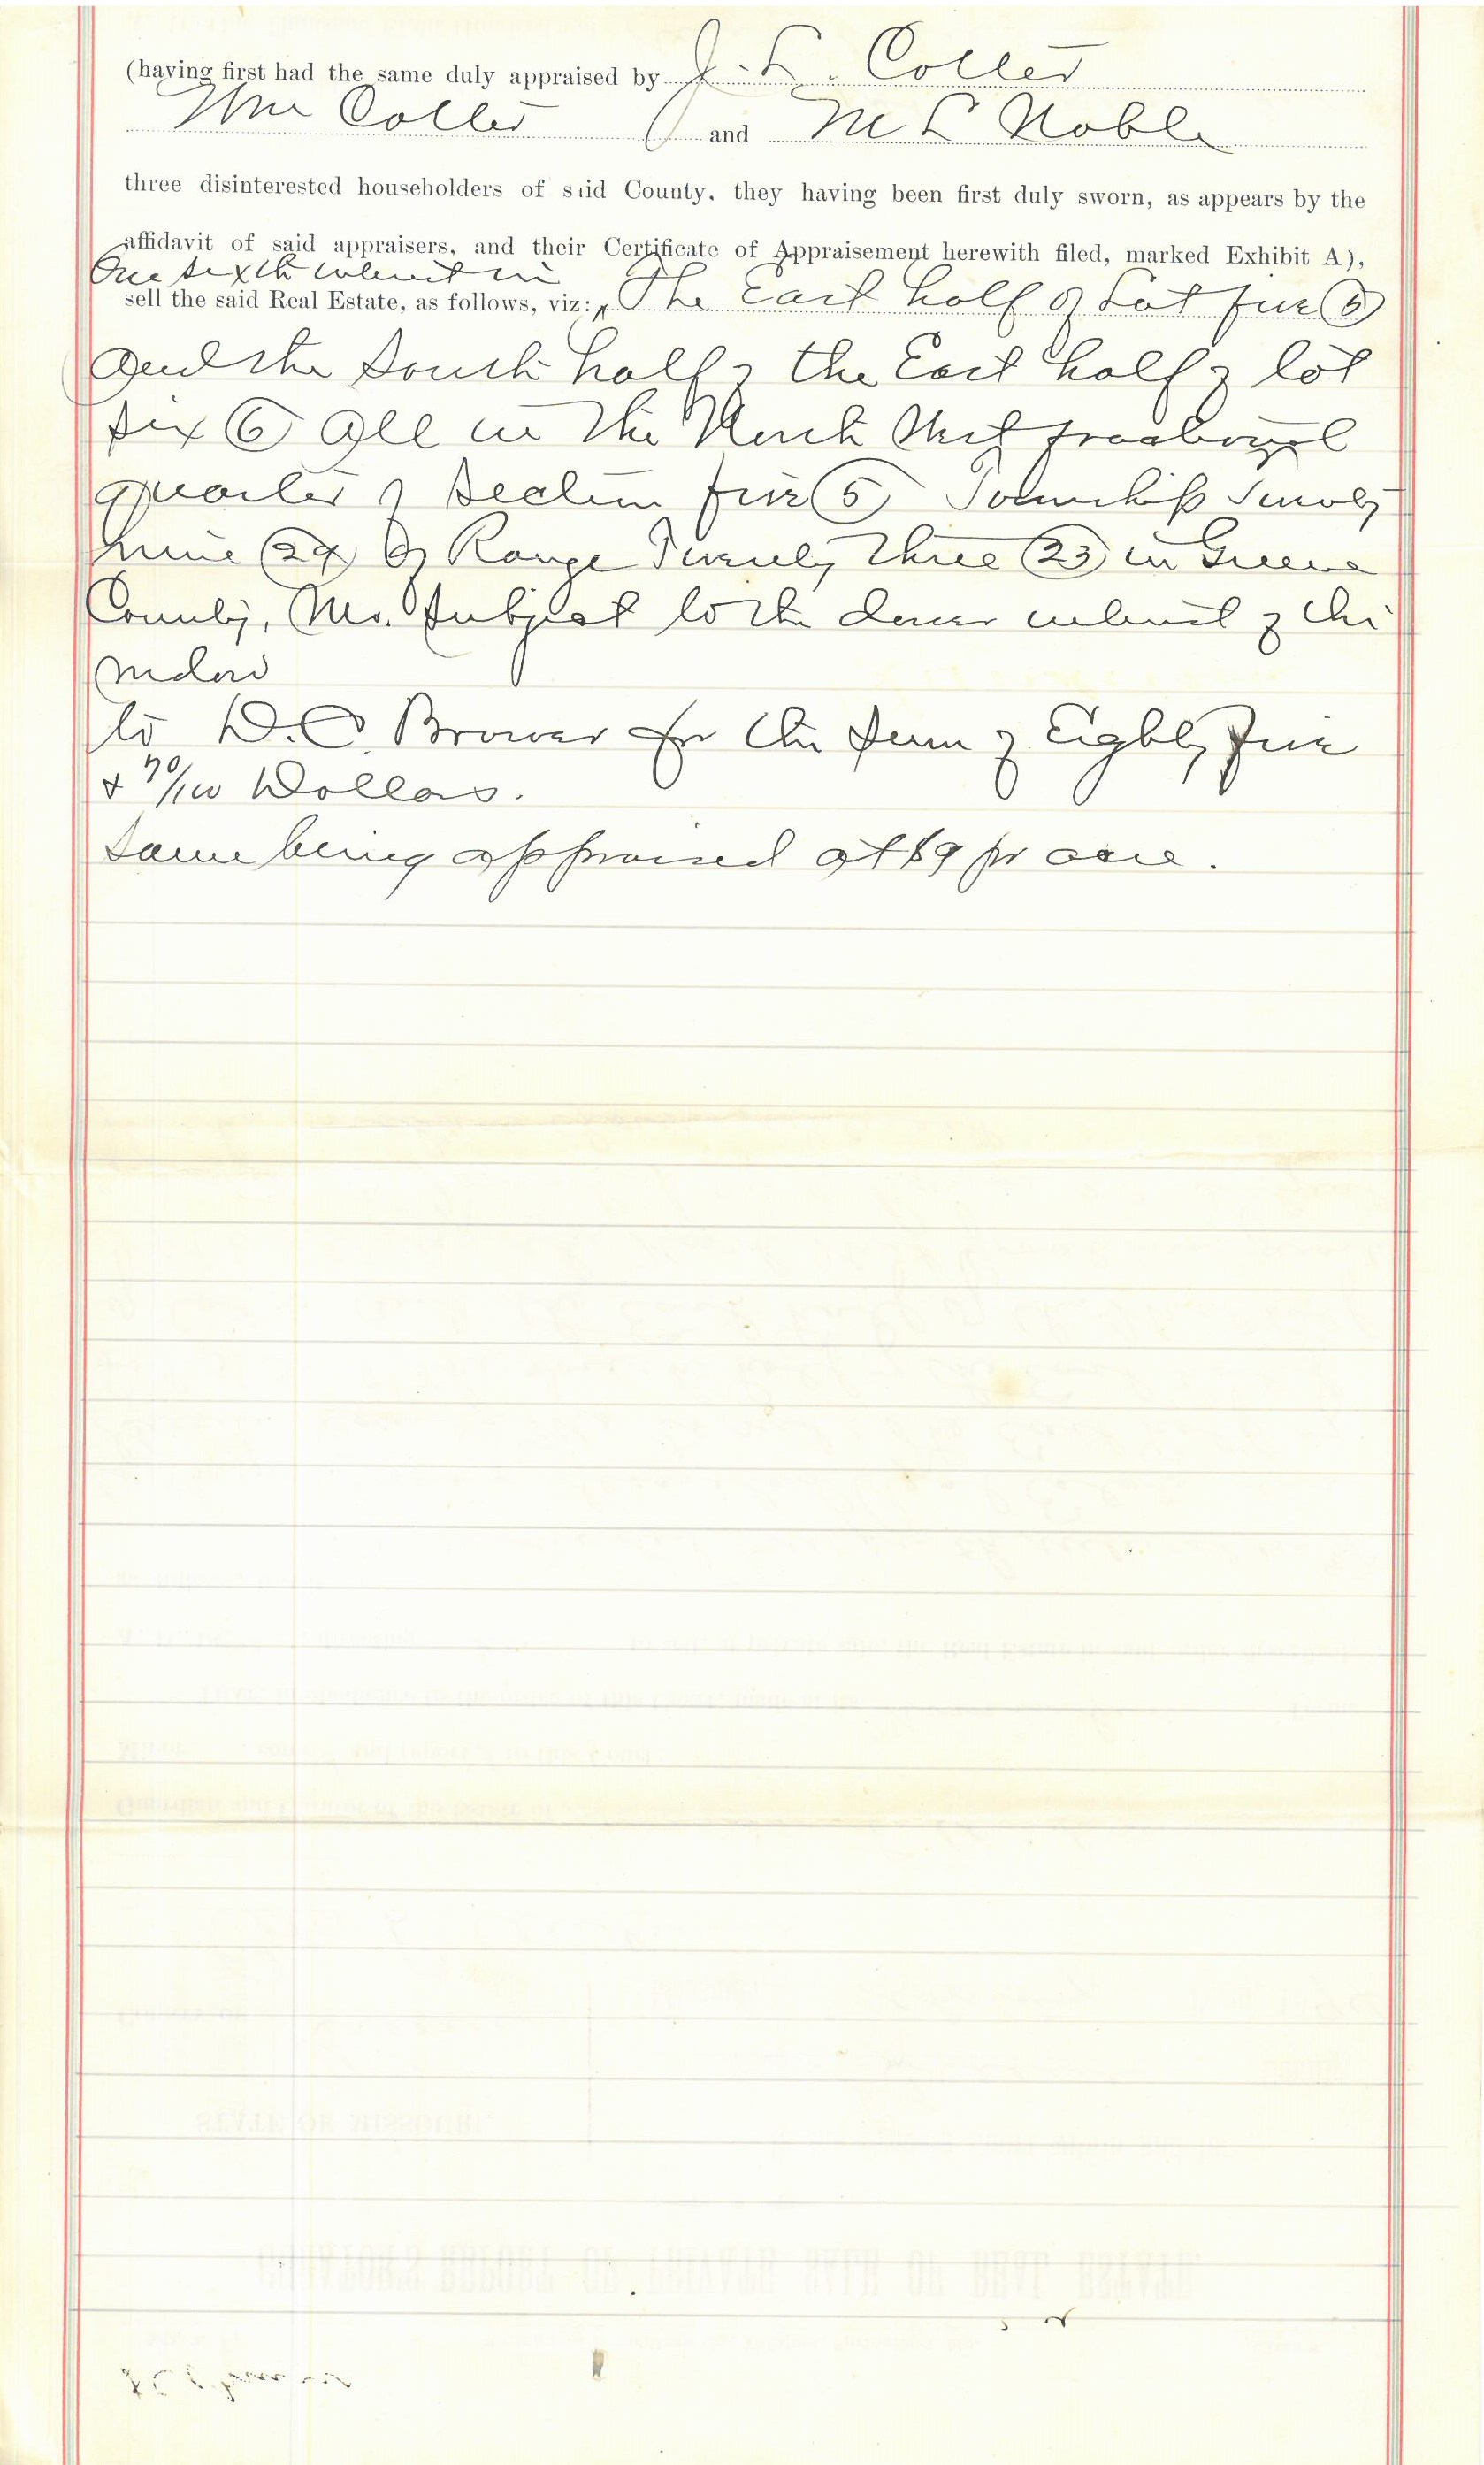 (having first had the same duly appraised by J. L. Colter
Wm Colter and M L Noble
three disinterested householders of said County, they having been first duly sworn, as appears by the
affidavit of said appraisers, and their Certificate of Appraisement herewith filed, marked Exhibit A),
One sixth interest in
sell the said Real Estate, as follows, viz: The East half of Lot five (5)
and the South half of the East half of lot
six (6) all in the North West fractional
quarter of Section five (5) Township Twenty
nine (29) of Range Twenty three (23) in Greene
County, Mo. Subject to the dower interest of the
widow
to D. C. Brower for the sum of Eighty five
& 70/100 Dollars.
Same being appraised at $9 pr acre.
STATE OF MISSOURI,
CURATOR'S REPORT OF PRIVATE SALE OF REAL ESTATE